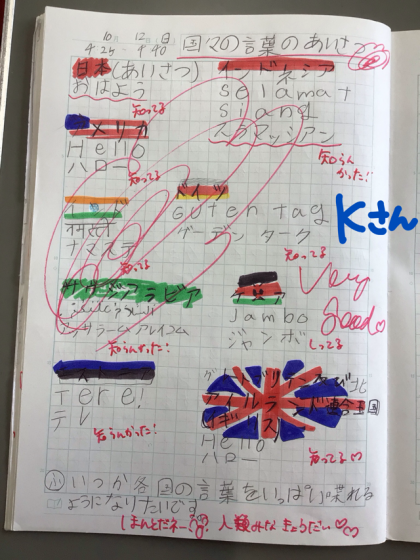 10月 12日
4時25分 4時40分
国々の言葉のあいさつ
日本(あいさつ)
おはよう
知ってる
インドネシア
selamat
siang
スラマッシアン
知らんかった!
アメリカ
Hello
ハロー
知ってる
ドイツ
Guten tag
グーテン ターク
知ってる
インド
ナマステ
知ってる
サウジアラビア
アッサラーム アレイコム
知らんかった!
ケニア
Jambo
ジャンボ
しってる
Kさん
Very Good
エストニア
Tere!
テレ
知らんかった!
グレートブリテン及び北アイルランド連合王国
イギリス
Hello
ハロー
知ってる
いつか各国の言葉をいっぱい喋れる
ようになりたいです
ほんとだネー 人類みなきょうだい